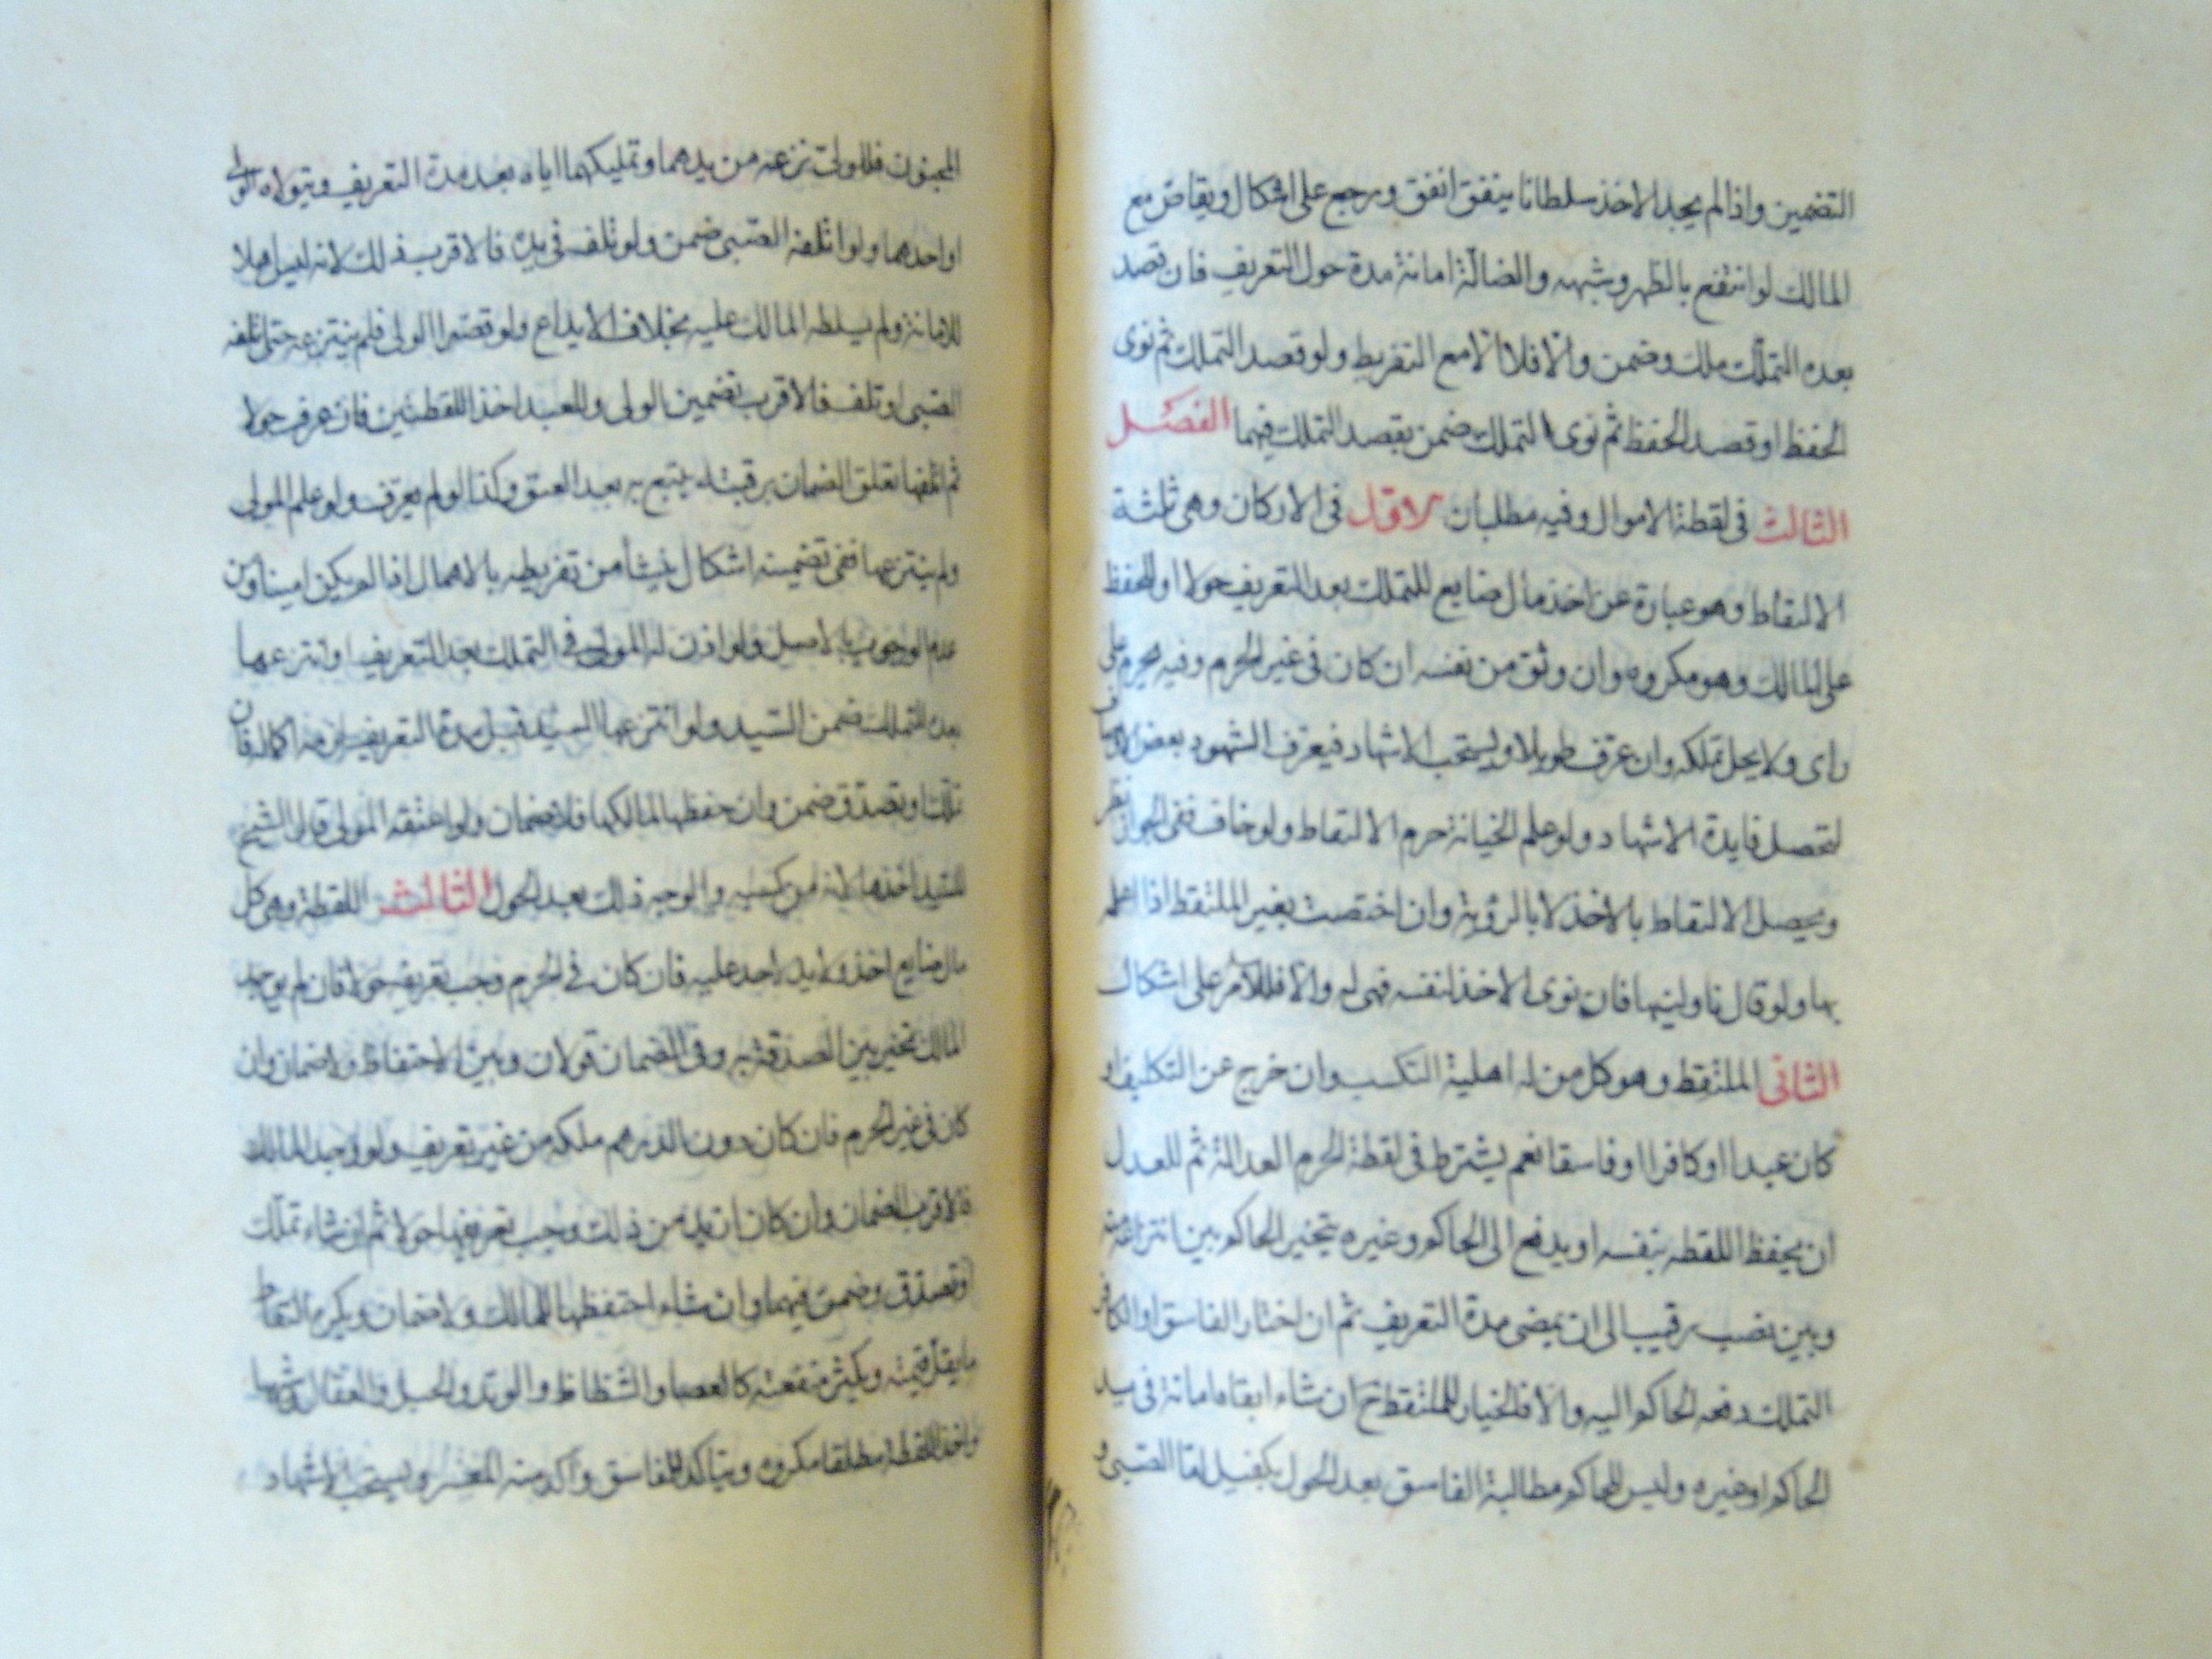 التضمين واذا لم يجد الاخذ سلطانا ينفق انفق ورجع على اشكال ويقاص مع
المالك لو انتفع بالظهر وشبهه والضالة امانة مدة حول التعريف فان قصد
بعده التملك ملك وضمن والا فلا الا مع التفريط ولو قصد التملك ثم نوى
الحفظ او قصد الحفظ ثم نوى التملك ضمن بقصد التملك فيهما الفصل
الثالث في لقطة الاموال وفيه مطلبان الاول في الاركان وهي ثلثة
الالتقاط وهو عبارة عن اخذ مال ضايع للتملك بعد التعريف حولا او للحفظ
على المالك وهو مكروه وان وثق من نفسه ان كان في غير الحرم وفيه يحرم على
راى ولا يحل تملكه وان عرف طويلا ويستحب الاشهاد فيعرف الشهود بعض
لتحصل فايدة الاشهاد ولو علم الخيانة حرم الالتقاط ولو خاف ففى الجواز نظر
ويحصل الالتقاط بالاخذ لا بالرؤية وان اختصت بغير الملتقط اذا اعلم
بها ولو قال ناولنيها فان نوى الاخذ لنفسه فهى له والا فللآمر على اشكال
الثانى الملتقط وهو كل من له اهلية التكسب وان خرج عن التكليف او
كان عبدا او كافرا او فاسقا نعم يشترط في لقطة الحرم العدالة ثم للعدل
ان يحفظ اللقطه بنفسه او يدفع الى الحاكم وغيره يتخير الحاكم بين انتزاعه منه
وبين نصب رقيب الى ان يمضى مدة التعريف ثم ان اختار الفاسق او الكافر
التملك دفعه الحاكم اليه والا فالخيار للملتقط ح ان شاء ابقاه امانة فى يد
الحاكم او غيره وليس للحاكم مطالبة الفاسق بعد الحول بكفيل اما الصبى و
المجنون فللولى نزعه من يدهما وتمليكهما اياه بعد مدة التعريف ويتولاه الولى
او احدهما ولو اتلفه الصبى ضمن ولو تلف في يده فالاقرب ذلك لانه ليس اهلا
للامانة ولم يسلطه المالك عليه بخلاف الايداع ولو قصر الولى فلم ينتزعه حتى اتلفه
الصبى او تلف فالاقرب تضمين الولى وللعبد اخذ اللقطتين فان عرف حولا
ثم اتلفها تعلق الضمان برقبته يتبع به بعد العتق وكذا لو لم يعرف ولو علم المولى
ولم ينتزعها ففى تضمينه اشكال ينشأ من تفريطه بالاهمال اذا لم يكن امينا ومن
عدم الوجوب بالاصل ولو اذن له المولى في التملك بعد التعريف او انتزعها
بعد التملك ضمن السيد ولو انتزعها السيد قبل مدة التعريف لزمه اكماله فان
تملك او تصدق ضمن وان حفظها لمالكها فلا ضمان ولو اعتقه المولى قال الشيخ
للسيد اخذها لانه من كسبه والوجه ذلك بعد الحول الثالث اللقطة وهى كل
مال ضايع اخذ ولا يد لاحد عليه فان كان في الحرم وجب تعريفه حولا فان لم يوجد
المالك تخير بين الصدقة به وفى الضمان قولان وبين الاحتفاظ ولا ضمان وان
كان في غير الحرم فان كان دون الدرهم ملكه من غير تعريف ولو وجد المالك
فالاقرب الضمان وان كان ازيد من ذلك وجب تعريفها حولا ثم ان شاء تملك
او تصدق وضمن فيهما وان شاء احتفظها للمالك ولا ضمان ويكره التقاط
ما يقل قيمته ويكثر منفعته كالعصا والشظاظ والوتد والحبل والعقال وشبهها
واخذ اللقطة مطلقا مكروه ويتاكد للفاسق وآكد منه المعسر ويستحب الاشهاد